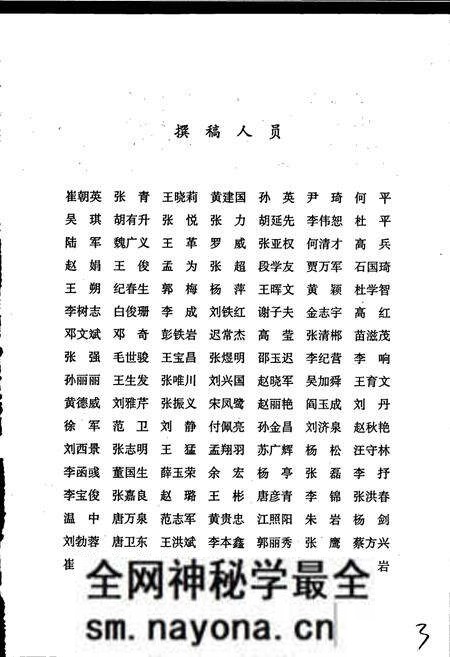 撰稿人员
崔朝英 张青 王晓莉 黄建国 孙英 尹琦 何平
吴琪 胡有升 张悦 张力 胡延先 李伟恕 杜平
陆军 魏广义 王革 罗威 张亚权 何清才 高兵
赵娟 王俊 孟为 张超 段学友 贾万军 石国琦
王朔 纪春生 郭梅 杨萍 王晖文 黄颖 杜学智
李树志 白俊珊 李成 刘铁红 谢子夫 金志宇 高红
邓文斌 邓奇 彭铁岩 迟常杰 高莹 张清郴 苗滋茂
张强 毛世骏 王宝昌 张煜明 邵玉迟 李纪营 李响
孙丽丽 王生发 张唯川 刘兴国 赵晓军 吴加舜 王育文
黄德威 刘雅芹 张振义 宋凤鹭 赵丽艳 阎玉成 刘丹
徐军 范卫 刘静 付佩亮 孙金昌 刘济泉 赵秋艳
刘西景 张志明 王猛 孟翔羽 苏广辉 杨松 汪守林
李函彧 董国生 薛玉荣 余宏 杨亭 张磊 李抒
李宝俊 张嘉良 赵璐 王彬 唐彦青 李锦 张洪春
温中 唐万泉 范志军 黄贵忠 江照阳 朱岩 杨剑
刘勃蓉 唐卫东 王洪斌 李本鑫 郭丽秀 张鹰 蔡方兴
崔 岩
全网神秘学最全
sm.nayona.cn
3